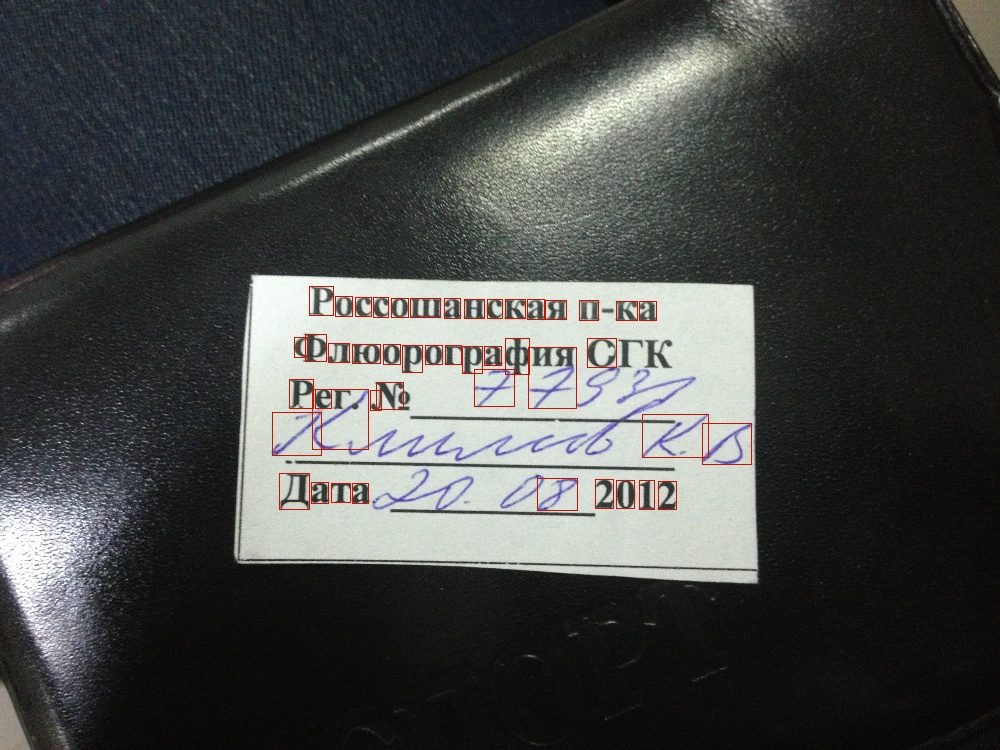 Россошанская п-ка
Флюорография СГК
Рег. №
Климов К.В
Дата 20. 08 2012